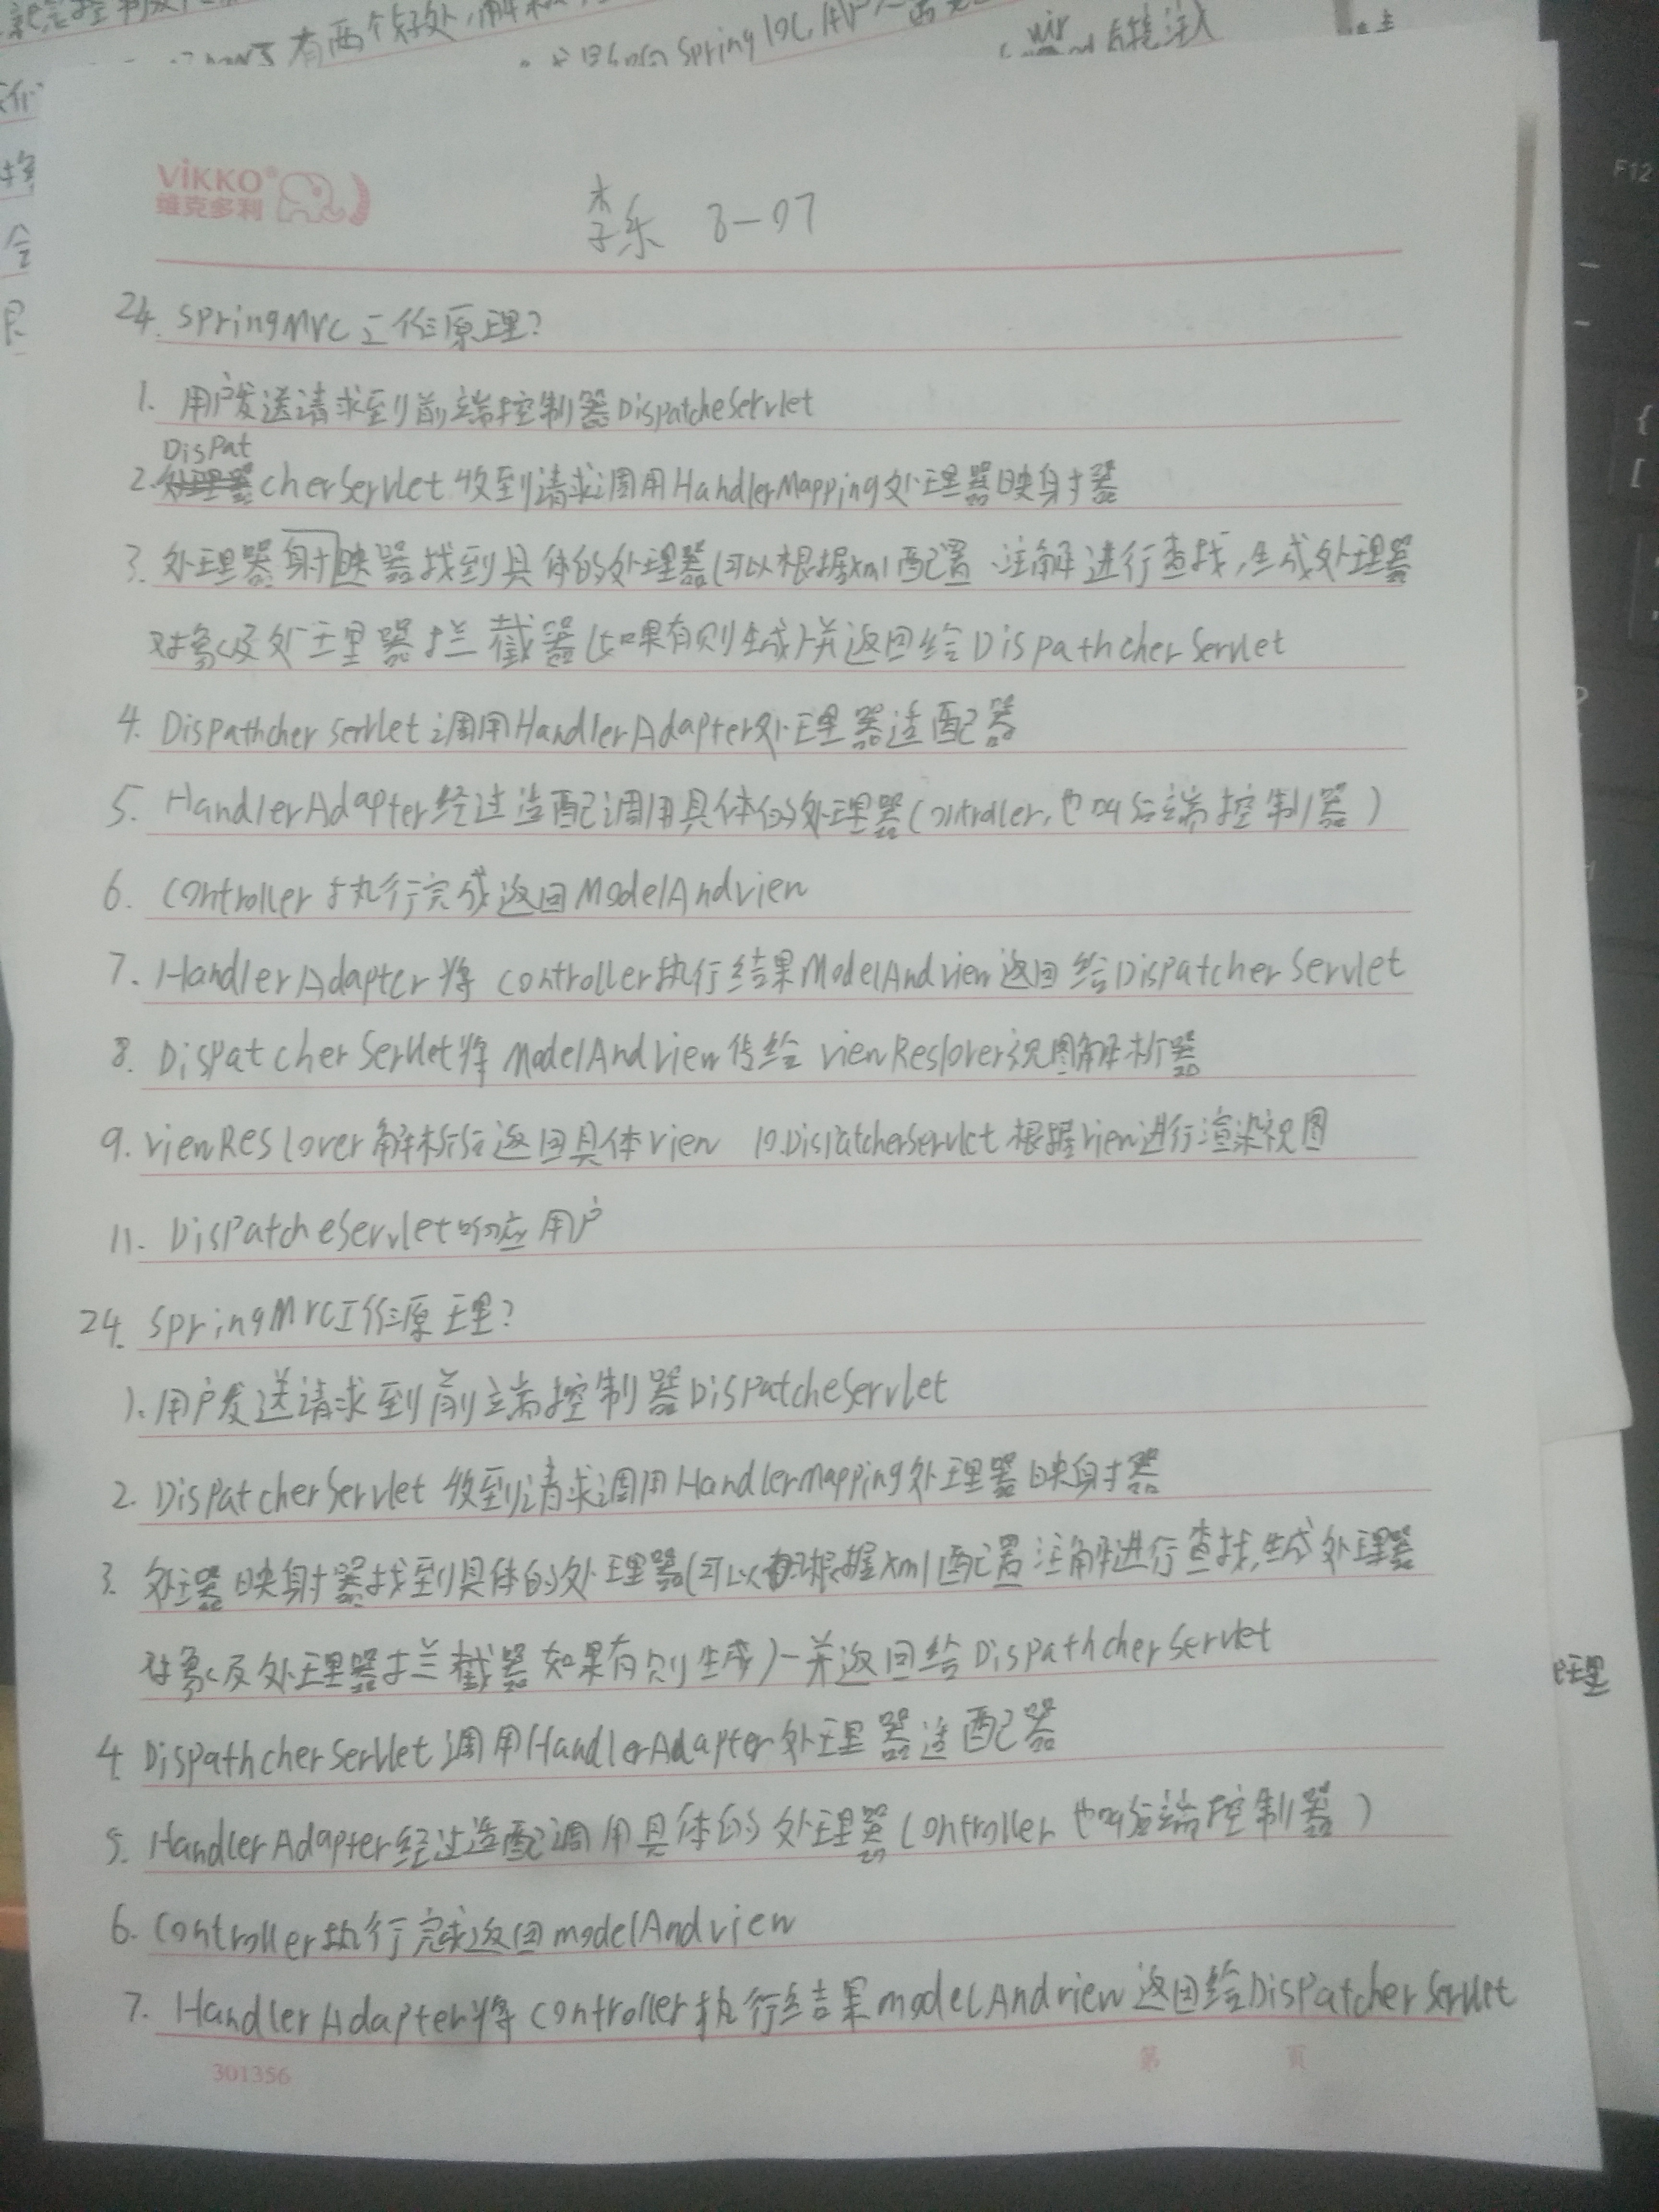 有两个好处,解
Spring IOC, AP
VIKKO®
维克多利
李乐 8-07
24. SpringMVC工作原理?
1. 用户发送请求到前端控制器DispatcheServlet
DisPat
2. cherServlet 收到请求调用HandlerMapping处理器映射器
3. 处理器射映器找到具体的处理器(可以根据xml配置、注解进行查找,生成处理器
对象及处理器拦截器(如果有则生成)并返回给DispathcherServlet
4. DispathcherServlet调用HandlerAdapter处理器适配器
5. HandlerAdapter经过适配调用具体的处理器(Controller,也叫后端控制器)
6. Controller执行完成返回ModelAndview
7. HandlerAdapter将controller执行结果ModelAndview返回给DispatcherServlet
8. DispatcherServlet将ModelAndview传给viewReslover视图解析器
9. viewReslover解析后返回具体view 10.DispatcherServlet根据view进行渲染视图
11. DispatcheServlet响应用户
24. SpringMVC工作原理?
1. 用户发送请求到前端控制器DisPatcheServlet
2. DispatcherServlet 收到请求调用HandlerMapping处理器映射器
3. 处理器映射器找到具体的处理器(可以根据xml配置注解进行查找,生成处理器
对象及处理器拦截器如果有则生成)一并返回给DispathcherServlet
4. DispathcherServlet调用HandlerAdapter处理器适配器
5. HandlerAdapter经过适配调用具体的处理器(Controller也叫后端控制器)
6. Controller执行完成返回modelAndview
7. HandlerAdapter将controller执行结果modelAndview返回给DisPatcherServlet
301356 第 頁
理
F12